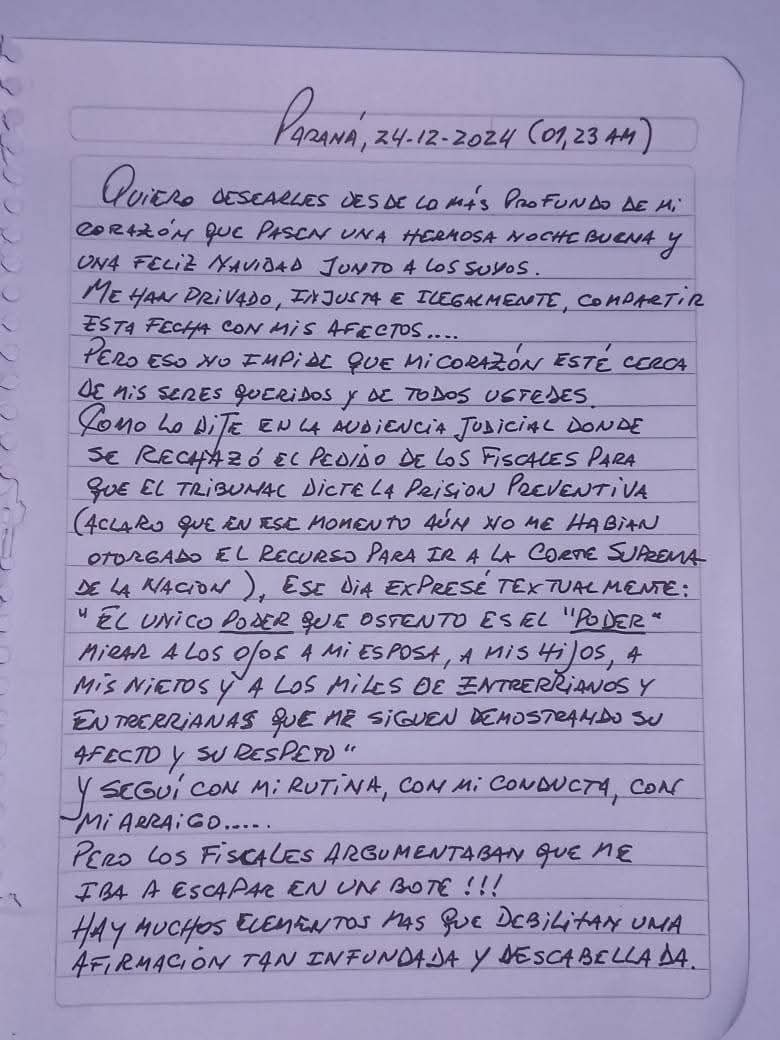 PARANÁ, 24-12-2024 (01,23 AM)
QUIERO DESEARLES DESDE LO MÁS PROFUNDO DE MI
CORAZÓN QUE PASEN UNA HERMOSA NOCHE BUENA Y
UNA FELIZ NAVIDAD JUNTO A LOS SUYOS.
ME HAN PRIVADO, INJUSTA E ILEGALMENTE, COMPARTIR
ESTA FECHA CON MIS AFECTOS....
PERO ESO NO IMPIDE QUE MI CORAZÓN ESTÉ CERCA
DE MIS SERES QUERIDOS Y DE TODOS USTEDES.
COMO LO DIJE EN LA AUDIENCIA JUDICIAL DONDE
SE RECHAZÓ EL PEDIDO DE LOS FISCALES PARA
QUE EL TRIBUNAL DICTE LA PRISION PREVENTIVA
(ACLARO QUE EN ESE MOMENTO AÚN NO ME HABIAN
OTORGADO EL RECURSO PARA IR A LA CORTE SUPREMA
DE LA NACION), ESE DIA EXPRESÉ TEXTUALMENTE:
"EL UNICO PODER QUE OSTENTO ES EL "PODER"
MIRAR A LOS OJOS A MI ESPOSA, A MIS HIJOS, A
MIS NIETOS Y A LOS MILES DE ENTRERRIANOS Y
ENTRERRIANAS QUE ME SIGUEN DEMOSTRANDO SU
AFECTO Y SU RESPETO"
Y SEGUÍ CON MI RUTINA, CON MI CONDUCTA, CON
MI ARRAIGO.....
PERO LOS FISCALES ARGUMENTABAN QUE ME
IBA A ESCAPAR EN UN BOTE!!!
HAY MUCHOS ELEMENTOS MAS QUE DEBILITAN UNA
AFIRMACIÓN TAN INFUNDADA Y DESCABELLADA.